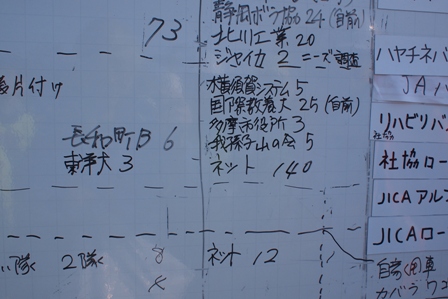 静岡ボラ協 24 (自前)
73
北川工業 20
ジャイカ 2 ニーズ調査
ハヤチネバ
片付け
横須賀システム 5
国際救友 25 (自前)
JAバ
多摩市役所 3
リハビリバ
長和町B 6
我孫子山の会 5
東洋大 3
ネット 140
社協ロー
JICAアル
JICAロー
い隊 2隊 8
ネット 12
自家用車
カバラ 7